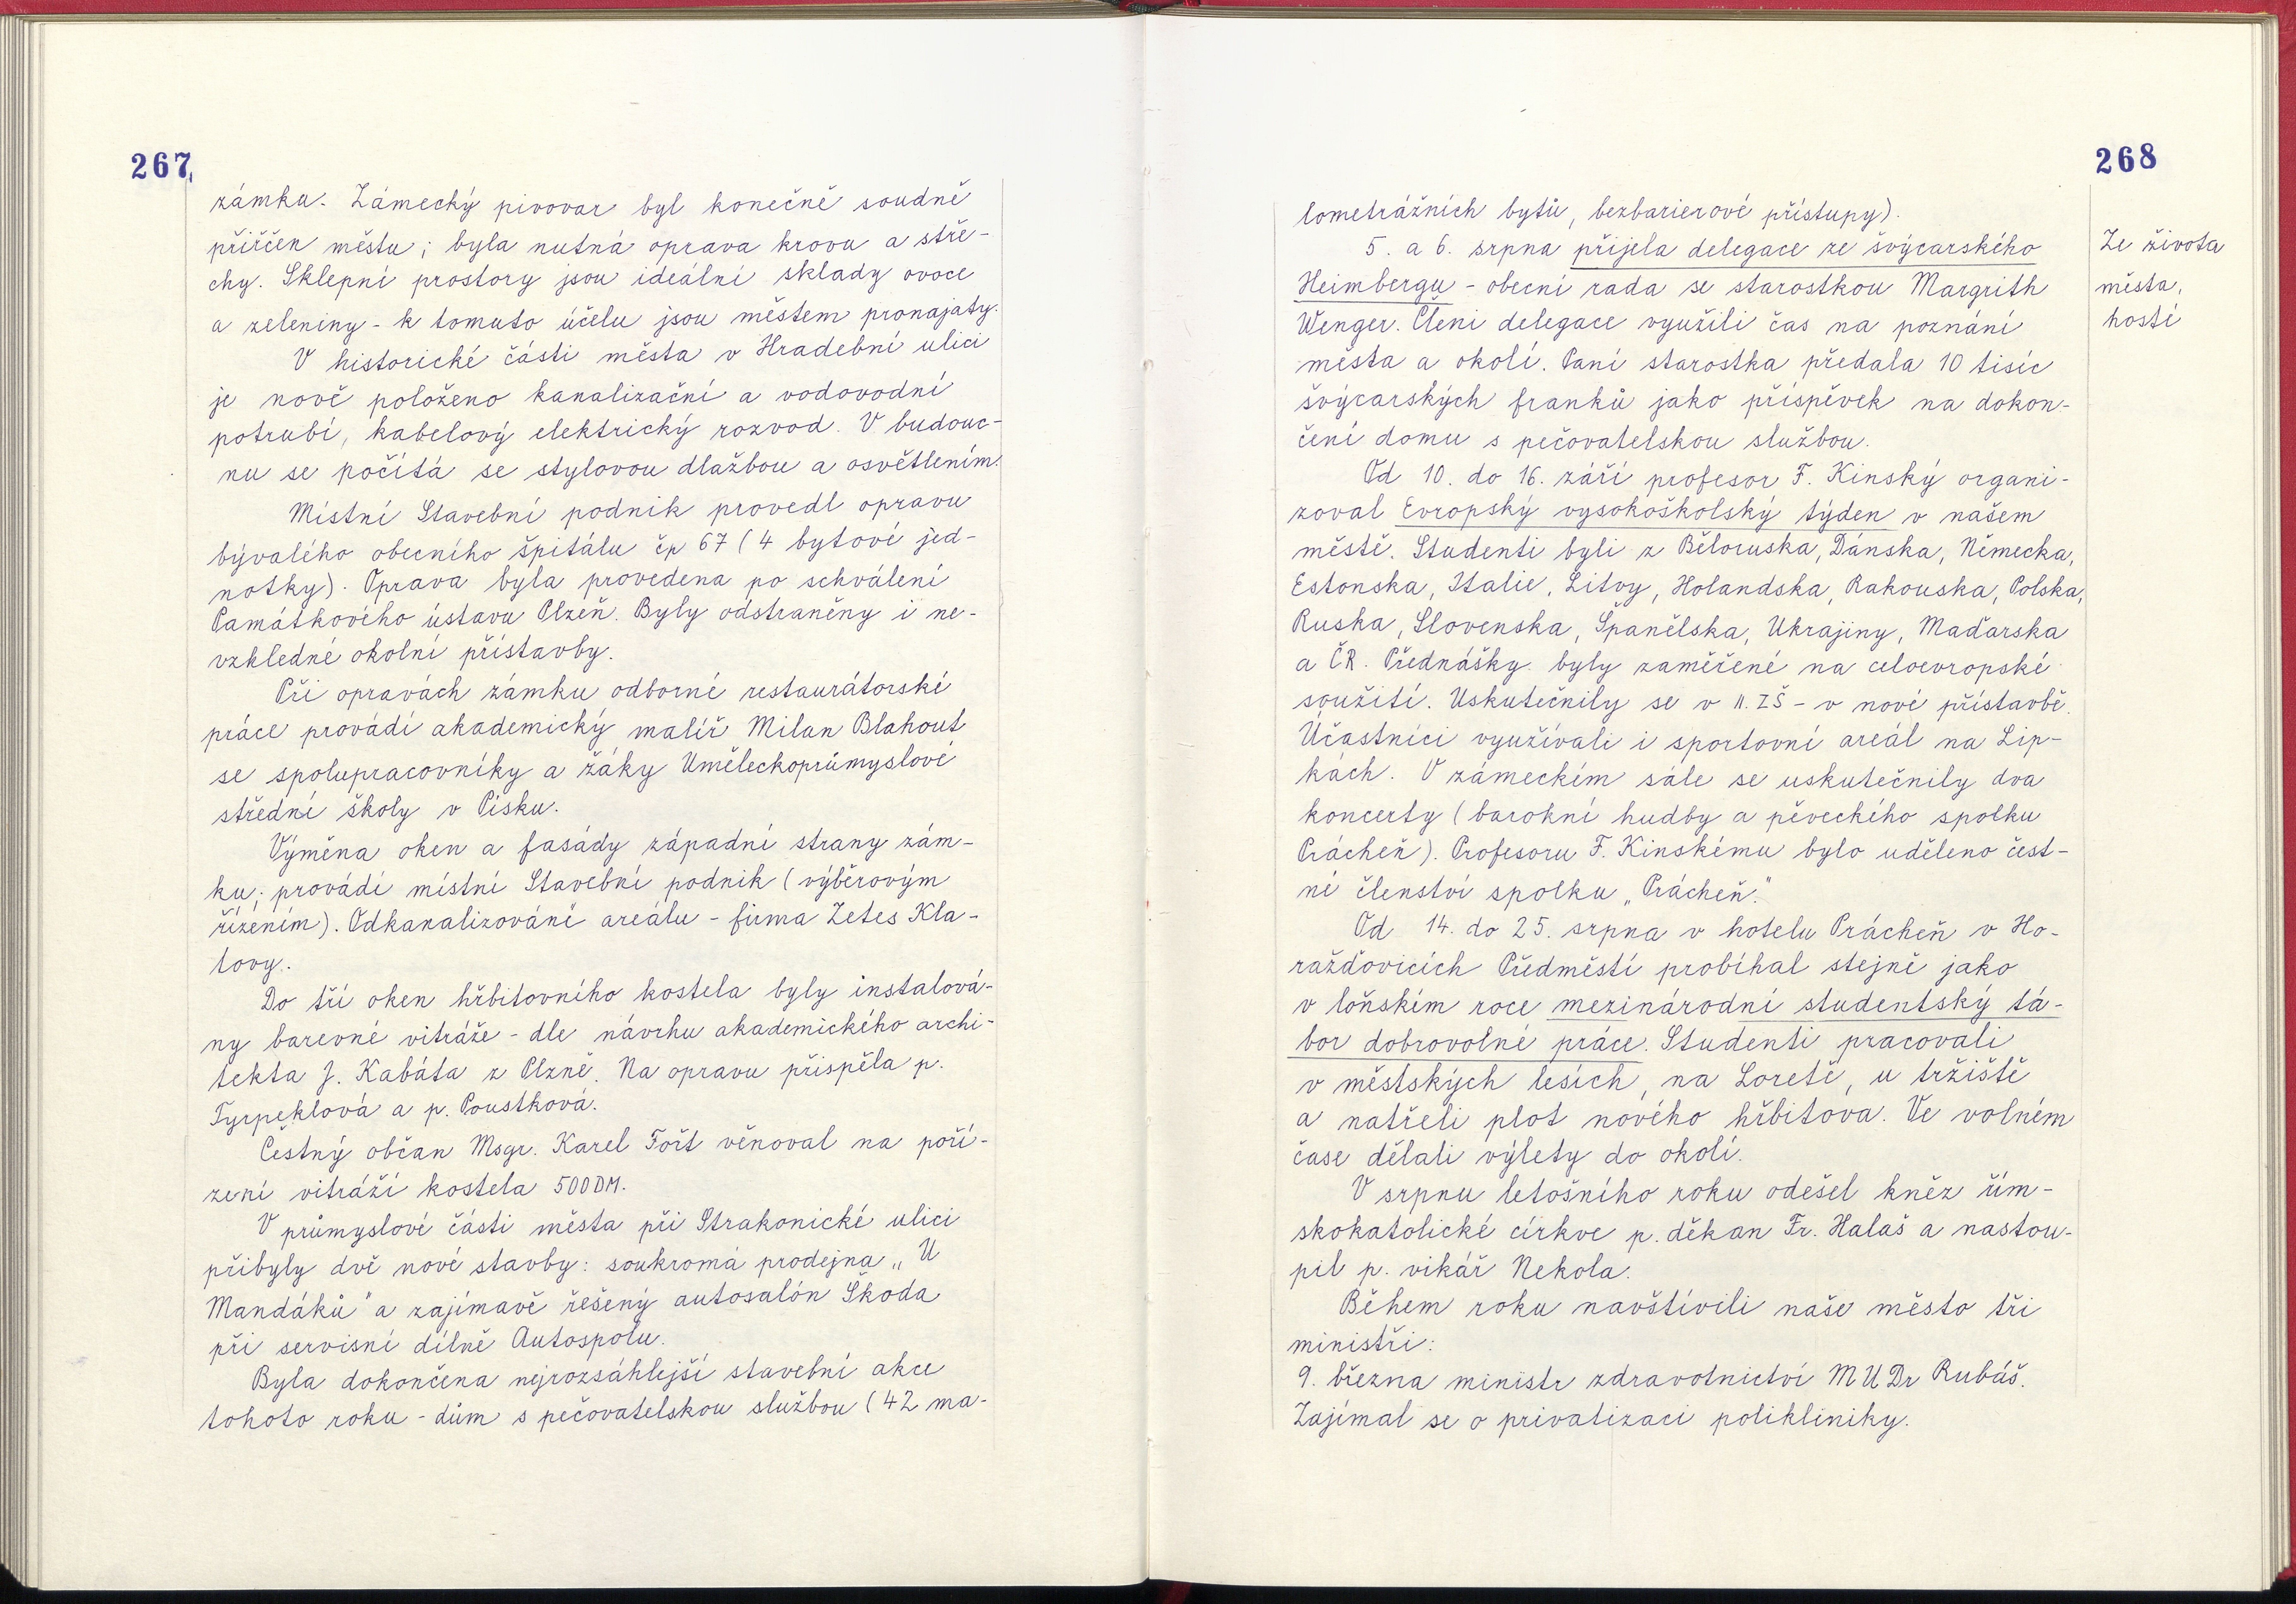 267
zámku. Zámecký pivovar byl konečně soudně
přiřčen městu; byla nutná oprava krovu a stře-
chy. Sklepní prostory jsou ideální sklady ovoce
a zeleniny - k tomuto účelu jsou městem pronajaty.
V historické části města v Hradební ulici
je nově položeno kanalizační a vodovodní
potrubí, kabelový elektrický rozvod. V budouc-
nu se počítá se stylovou dlažbou a osvětlením.
Místní Stavební podnik provedl opravu
bývalého obecního špitálu čp 67 (4 bytové jed-
notky). Oprava byla provedena po schválení
Památkového ústavu Plzeň. Byly odstraněny i ne-
vzkledné okolní přístavby.
Při opravách zámku odborné restaurátorské
práce provádí akademický malíř Milan Blahout
se spolupracovníky a žáky Uměleckoprůmyslové
střední školy v Písku.
Výměna oken a fasády západní strany zám-
ku; provádí místní Stavební podnik (výběrovým
řízením). Odkanalizování areálu - firma Zetes Kla-
tovy.
Do tří oken hřbitovního kostela byly instalová-
ny barevné vitráže - dle návrhu akademického archi-
tekta J. Kabáta z Plzně. Na opravu přispěla p.
Tyrpeklová a p. Poustková.
Čestný občan Msgr. Karel Fořt věnoval na poří-
zení vitráží kostela 500DM.
V průmyslové části města při Strakonické ulici
přibyly dvě nové stavby: soukromá prodejna „U
Mandáků" a zajímavě řešený autosalón Škoda
při servisní dílně Autospolu.
Byla dokončena nejrozsáhlejší stavební akce
tohoto roku - dům s pečovatelskou službou (42 ma-
268
lometrážních bytů, bezbarierové přístupy).
5. a 6. srpna přijela delegace ze švýcarského
Heimbergu - obecní rada se starostkou Margrith
Wenger. Členi delegace využili čas na poznání
města a okolí. Paní starostka předala 10 tisíc
švýcarských franků jako příspěvek na dokon-
čení domu s pečovatelskou službou.
Od 10. do 16. září profesor F. Kinský organi-
zoval Evropský vysokoškolský týden v našem
městě. Studenti byli z Běloruska, Dánska, Německa,
Estonska, Italie, Litvy, Holandska, Rakouska, Polska,
Ruska, Slovenska, Španělska, Ukrajiny, Maďarska
a ČR. Přednášky byly zaměřené na celoevropské
soužití. Uskutečnily se v II. ZŠ - v nové přístavbě.
Účastníci využívali i sportovní areál na Lip-
kách. V zámeckém sále se uskutečnily dva
koncerty (barokní hudby a pěveckého spolku
Prácheň). Profesoru F. Kinskému bylo uděleno čest-
né členství spolku „Prácheň."
Od 14. do 25. srpna v hotelu Prácheň v Ho-
ražďovicích Předměstí probíhal stejně jako
v loňském roce mezinárodní studentský tá-
bor dobrovolné práce. Studenti pracovali
v městských lesích, na Loretě, u tržiště
a natřeli plot nového hřbitova. Ve volném
čase dělali výlety do okolí.
V srpnu letošního roku odešel kněz řím-
skokatolické církve p. děkan Fr. Halaš a nastou-
pil p. vikář Nekola.
Během roku navštívili naše město tři
ministři:
9. března ministr zdravotnictví MUDr Rubáš.
Zajímal se o privatizaci polikliniky.
Ze života
města,
hosté